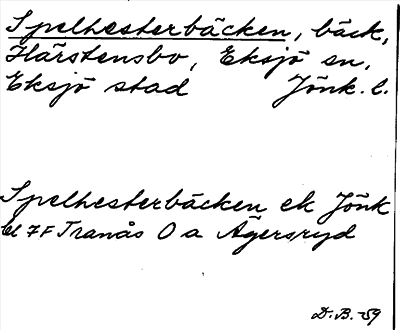 Spelhesterbäcken, bäck,
Härstensbo, Eksjö sn,
Eksjö stad Jönk. l.
Spelhesterbäcken ek Jönk
bl 7F Tranås O a Ägersryd
D. B. -59